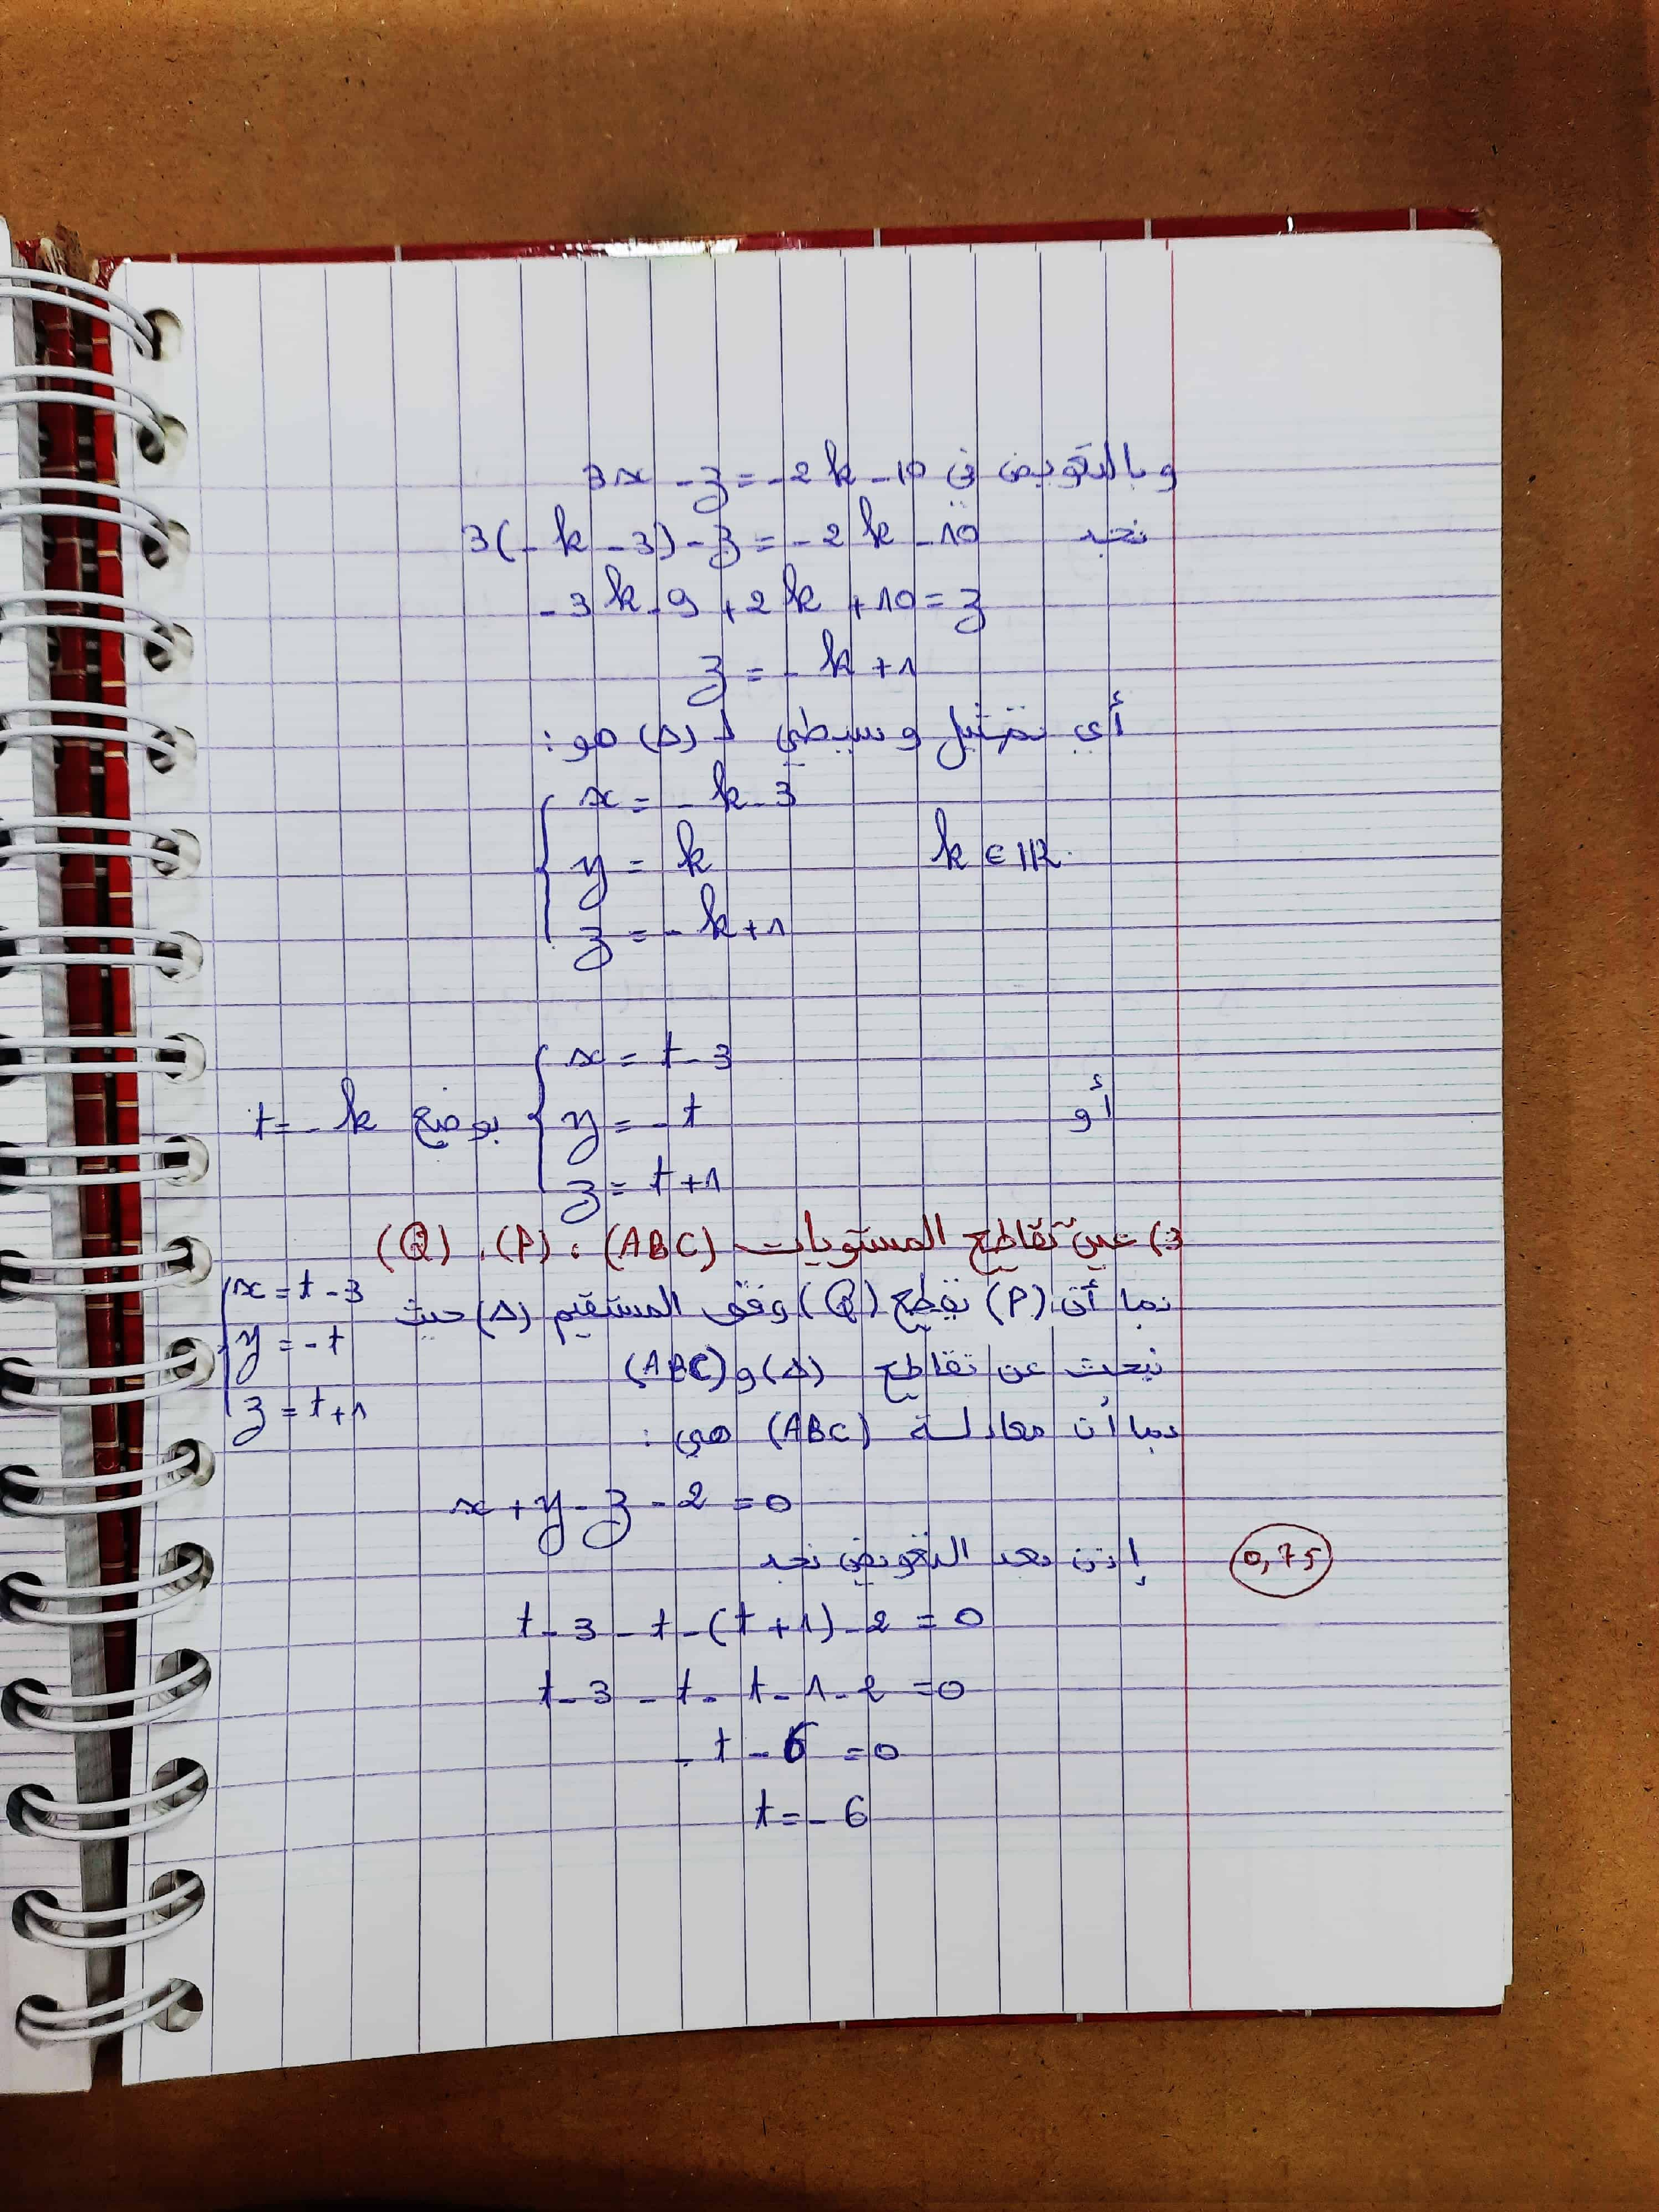 وبالتعويض في 3x - z = -2k - 10
نجد 3(-k - 3) - z = -2k - 10
-3k - 9 + 2k + 10 = z
z = -k + 1
أي تمثيل وسيطي لـ (Δ) هو :
x = -k - 3
y = k k ∈ IR.
z = -k + 1
x = t - 3
أو y = -t بوضع t = -k
z = t + 1
3) عين تقاطع المستويات (ABC) ، (P) ، (Q)
بما أن (P) يقطع (Q) وفق المستقيم (Δ) حيث
x = t - 3
y = -t
z = t + 1
نبحث عن تقاطع (Δ) و (ABC)
بما أن معادلة (ABC) هي :
x + y - z - 2 = 0
إذن بعد التعويض نجد
0,75
t - 3 - t - (t + 1) - 2 = 0
t - 3 - t - t - 1 - 2 = 0
-t - 6 = 0
t = -6